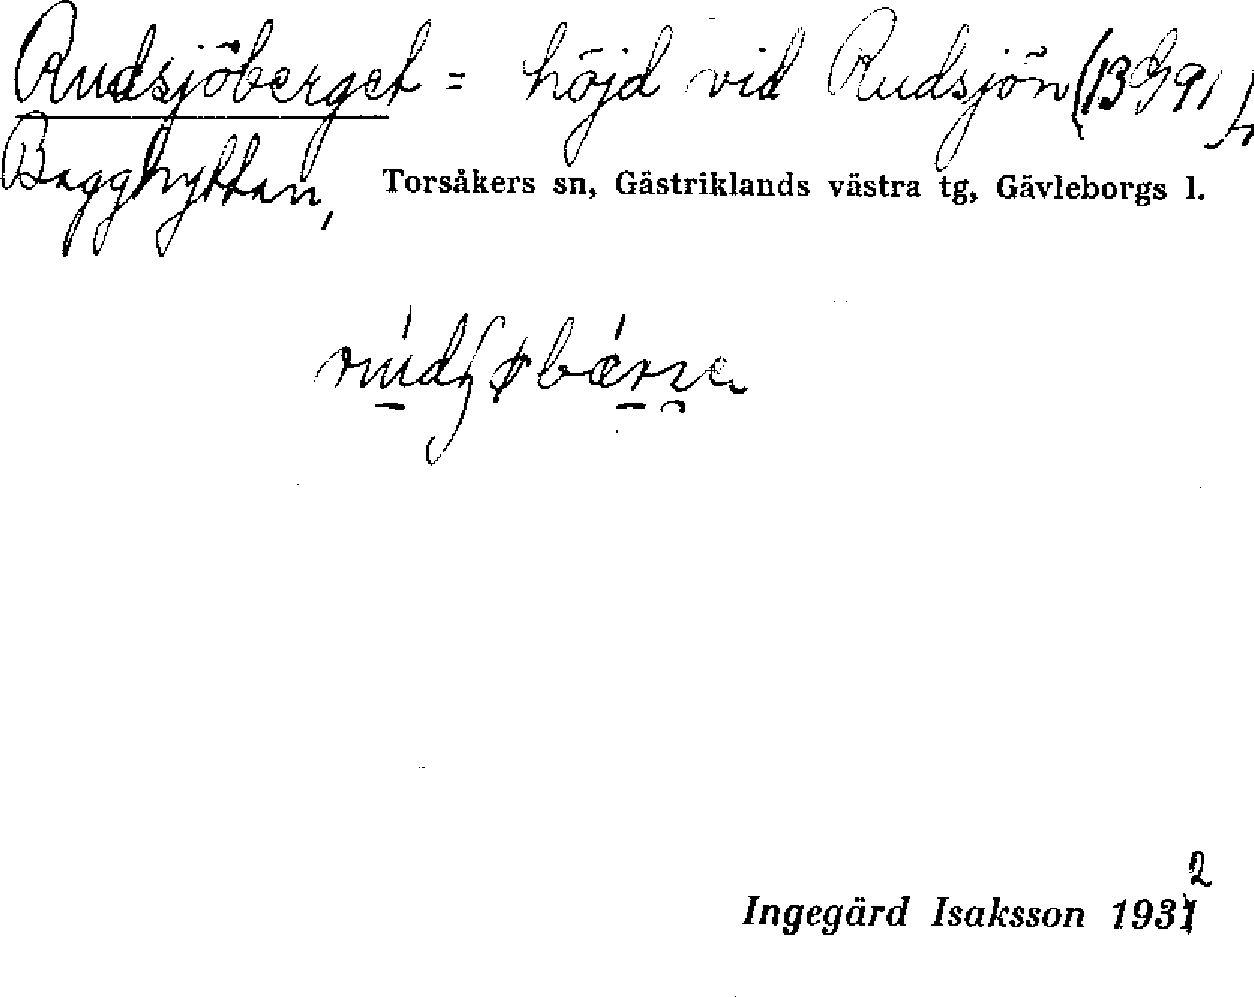 Rudsjöberget = höjd vid Rudsjön (13 G 9i),
Bagghyttan, Torsåkers sn, Gästriklands västra tg, Gävleborgs l.
Ingegärd Isaksson 1932